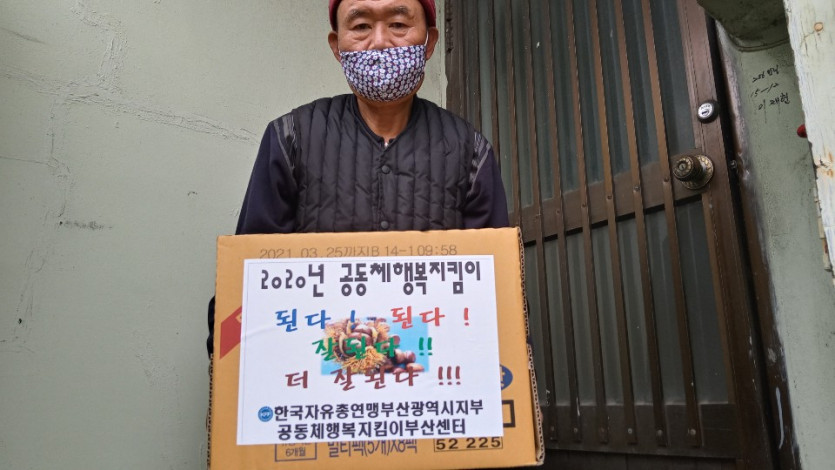 2021.03.25까지B 14-1 09:58
2020년 공동체행복지킴이
된다! 된다!
잘된다!!
더 잘된다!!!
한국자유총연맹부산광역시지부
공동체행복지킴이부산센터
6개월
멀티팩(5개)X8팩
52 225